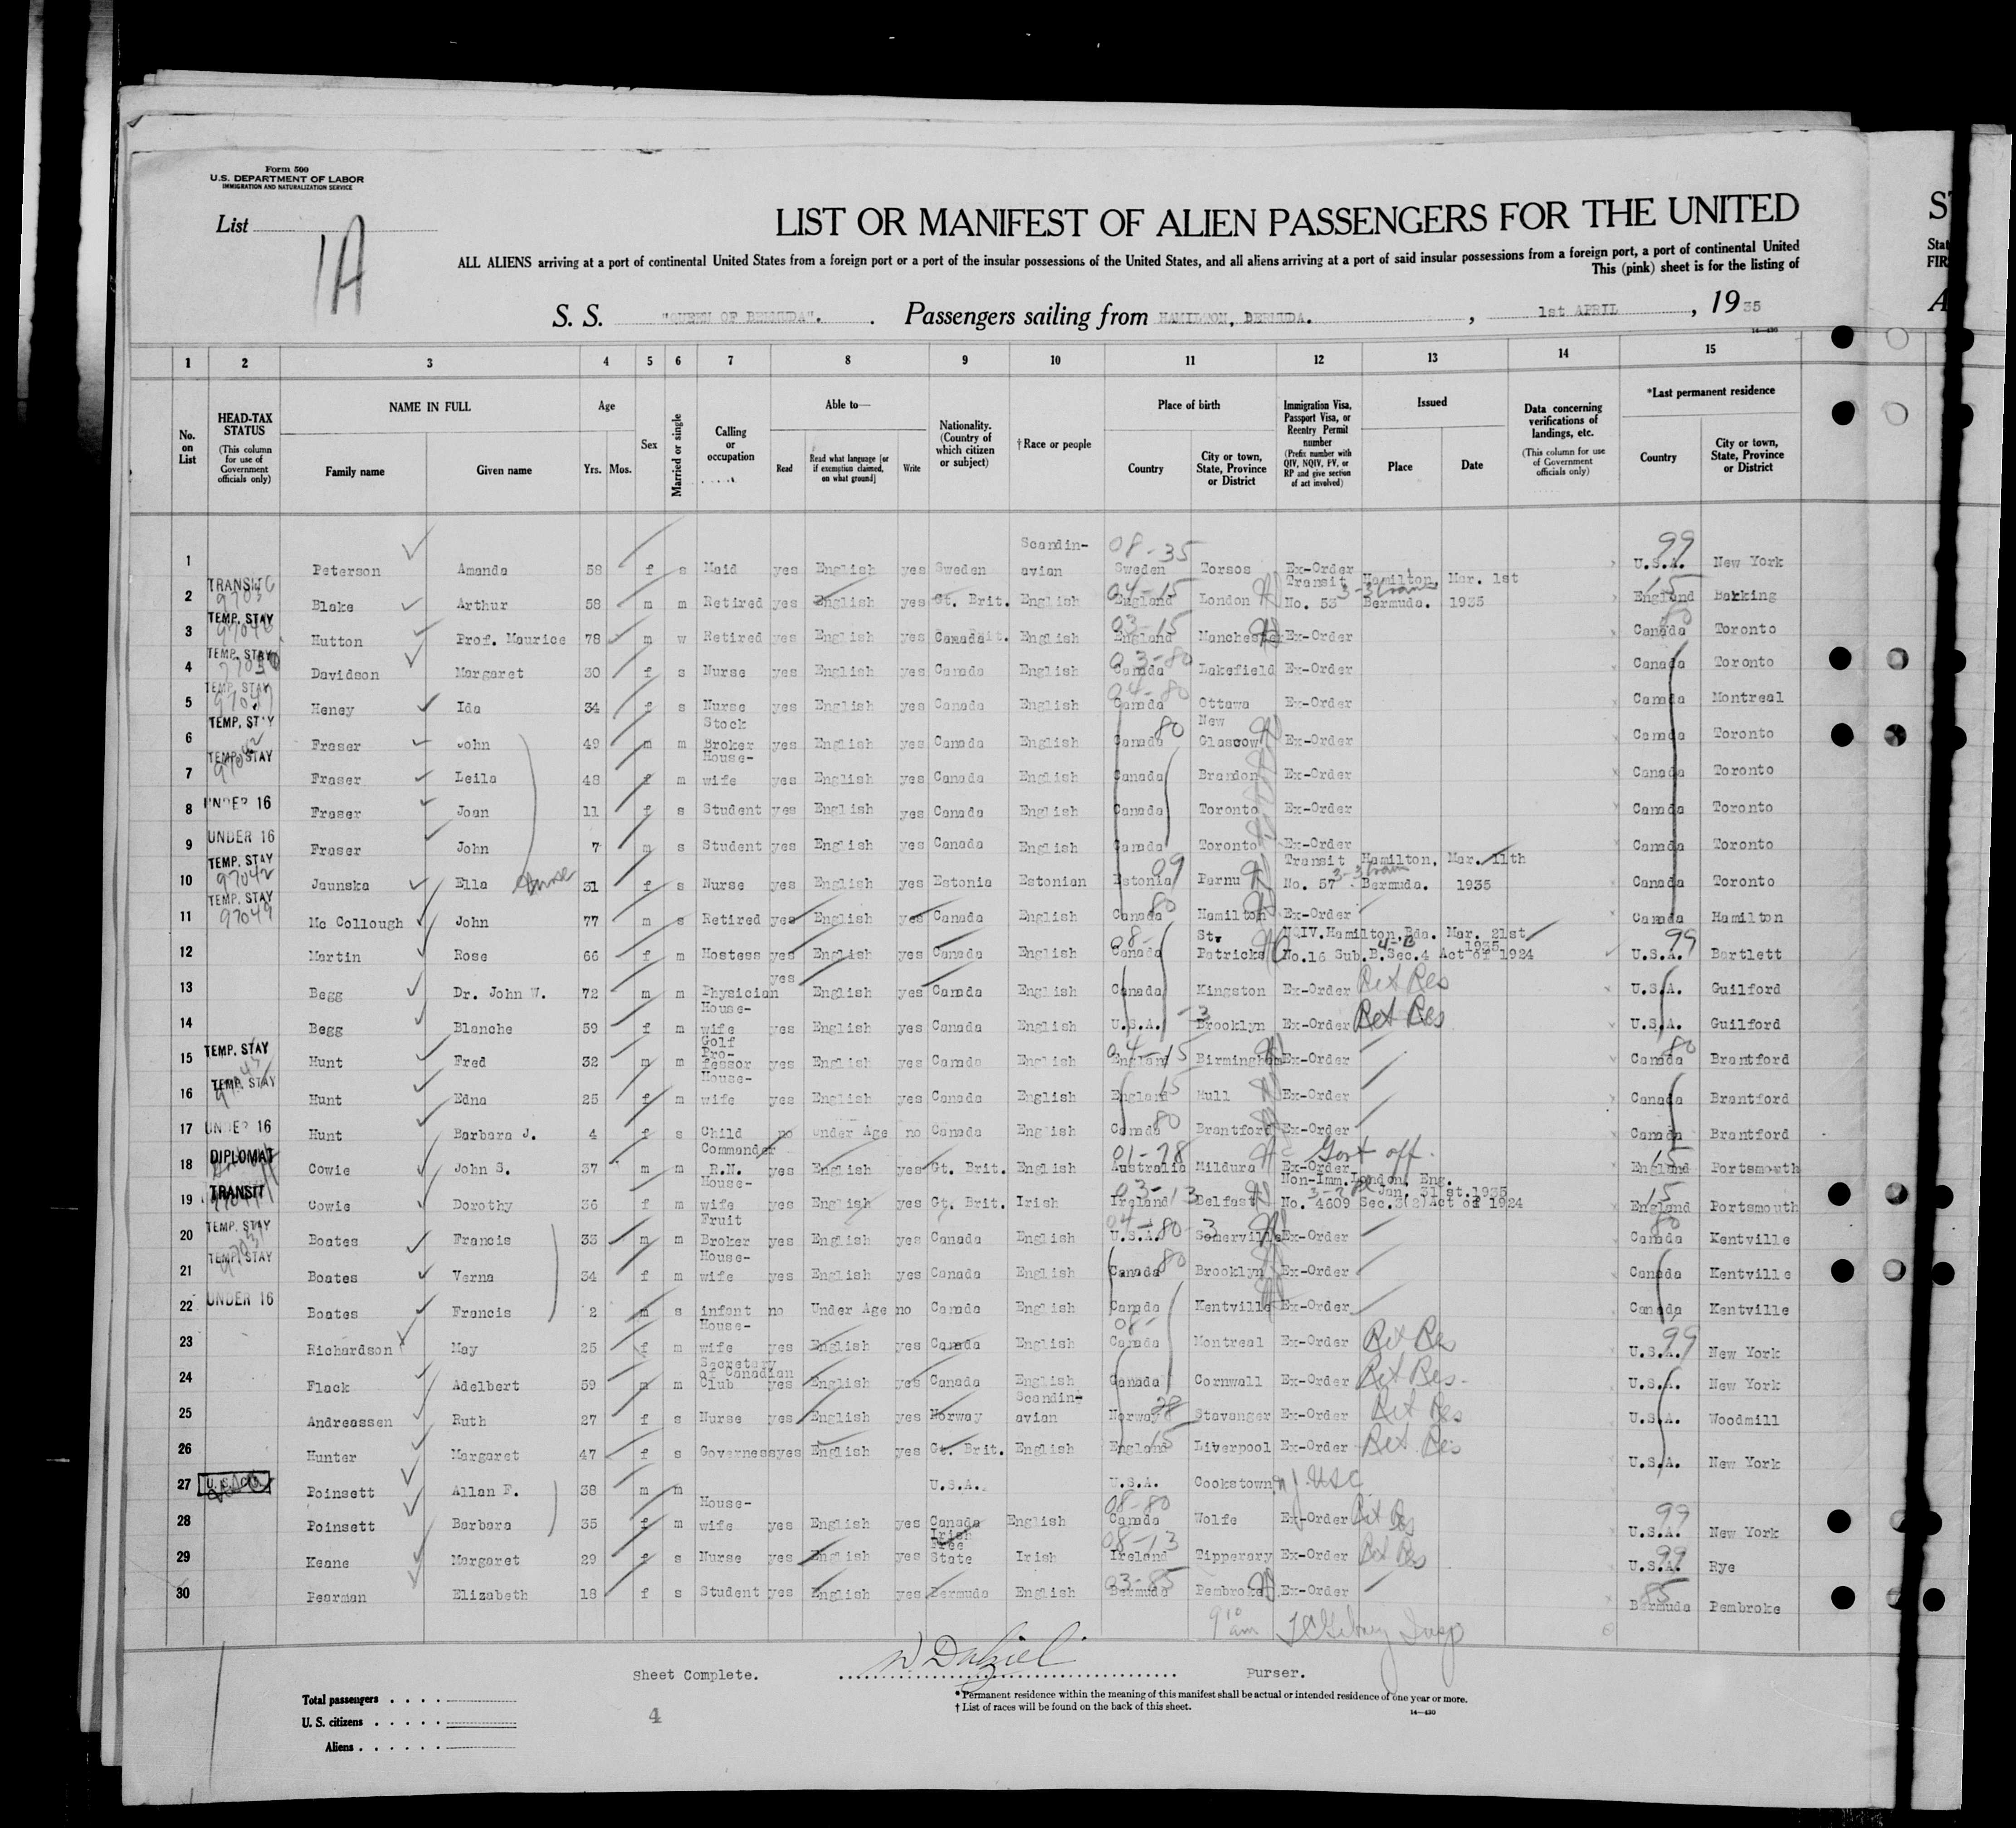 Form 500
U.S. DEPARTMENT OF LABOR
IMMIGRATION AND NATURALIZATION SERVICE
List 1A
LIST OR MANIFEST OF ALIEN PASSENGERS FOR THE UNITED
ALL ALIENS arriving at a port of continental United States from a foreign port or a port of the insular possessions of the United States, and all aliens arriving at a port of said insular possessions from a foreign port, a port of continental United
This (pink) sheet is for the listing of
S. S. "QUEEN OF BERMUDA". Passengers sailing from HAMILTON, BERMUDA. , 1st APRIL , 1935
14—430
1 2 3 4 5 6 7 8 9 10 11 12 13 14 15
No. on List
HEAD-TAX STATUS (This column for use of Government officials only)
NAME IN FULL Family name Given name
Age Yrs. Mos.
Sex
Married or single
Calling or occupation
Able to— Read Read what language [or if exemption claimed, on what ground] Write
Nationality. (Country of which citizen or subject)
†Race or people
Place of birth Country City or town, State, Province or District
Immigration Visa, Passport Visa, or Reentry Permit number (Prefix number with QIV, NQIV, PV, or RP and give section of act involved)
Issued Place Date
Data concerning verifications of landings, etc. (This column for use of Government officials only)
*Last permanent residence Country City or town, State, Province or District
1 Peterson Amanda 58 f s Maid yes English yes Sweden Scandin-avian 08-35 Sweden Torsos Ex-Order 99 U.S.A. New York
2 TRANSIT Blake Arthur 58 m m Retired yes English yes Gt. Brit. English 04-15 England London Transit No. 53 Hamilton, Bermuda. Mar. 1st 1935 15 England Barking
3 TEMP. STAY Hutton Prof. Maurice 78 m w Retired yes English yes Canada English 03-15 England Manchester Ex-Order 80 Canada Toronto
4 TEMP. STAY Davidson Margaret 30 f s Nurse yes English yes Canada English 03-80 Canada Lakefield Ex-Order Canada Toronto
5 TEMP. STAY Heney Ida 34 f s Nurse yes English yes Canada English 04-80 Canada Ottawa Ex-Order Canada Montreal
6 TEMP. STAY Fraser John 49 m m Stock Broker yes English yes Canada English 80 Canada New Glascow Ex-Order Canada Toronto
7 TEMP. STAY Fraser Leila 48 f m House-wife yes English yes Canada English Canada Brandon Ex-Order Canada Toronto
8 UNDER 16 Fraser Joan 11 f s Student yes English yes Canada English Canada Toronto Ex-Order Canada Toronto
9 UNDER 16 Fraser John 7 m s Student yes English yes Canada English Canada Toronto Ex-Order Canada Toronto
10 TEMP. STAY 97042 Jaunska Ella nurse 31 f s Nurse yes English yes Estonia Estonian 09 Estonia Parnu Transit No. 57 Hamilton, Bermuda. Mar. 11th 1935 Canada Toronto
11 TEMP. STAY 97049 Mc Collough John 77 m s Retired yes English yes Canada English 80 Canada Hamilton Ex-Order Canada Hamilton
12 Martin Rose 66 f m Hostess yes English yes Canada English 08- Canada St. Patricks NQIV. Hamilton Bda. Mar. 21st 1935 No.16 Sub.B.Sec.4 Act of 1924 4-B 99 U.S.A. Bartlett
13 Begg Dr. John W. 72 m m Physician yes English yes Canada English Canada Kingston Ex-Order Ret Res U.S.A. Guilford
14 Begg Blanche 59 f m House-wife yes English yes Canada English U.S.A. -3 Brooklyn Ex-Order Ret Res U.S.A. Guilford
15 TEMP. STAY Hunt Fred 32 m m Golf Pro-fessor yes English yes Canada English 04-15 England Birmingham Ex-Order 80 Canada Brantford
16 TEMP. STAY Hunt Edna 25 f m House-wife yes English yes Canada English 15 England Hull Ex-Order Canada Brantford
17 UNDER 16 Hunt Barbara J. 4 f s Child no under Age no Canada English 80 Canada Brantford Ex-Order Canada Brantford
18 DIPLOMAT Cowie John S. 37 m m Commander R.N. yes English yes Gt. Brit. English 01-78 Australia Mildura Ex-Order Govt off. 15 England Portsmouth
19 TRANSIT Cowie Dorothy 36 f m House-wife yes English yes Gt. Brit. Irish 03-13 Ireland Belfast Non-Imm. London, Eng. No. 4609 Jan. 31st.1935 Sec.3(2)Act of 1924 15 England Portsmouth
20 TEMP. STAY Boates Francis 33 m m Fruit Broker yes English yes Canada English 04-80-3 U.S.A. Somerville Ex-Order 80 Canada Kentville
21 TEMP. STAY Boates Verna 34 f m House-wife yes English yes Canada English 80 Canada Brooklyn Ex-Order Canada Kentville
22 UNDER 16 Boates Francis 2 m s infant no Under Age no Canada English Canada Kentville Ex-Order Canada Kentville
23 Richardson May 25 f m House-wife yes English yes Canada English 08- Canada Montreal Ex-Order Ret Res 99 U.S.A. New York
24 Flack Adelbert 59 m m Secretary of Canadian Club yes English yes Canada English Canada Cornwall Ex-Order Ret Res. U.S.A. New York
25 Andreassen Ruth 27 f s Nurse yes English yes Norway Scandin-avian 28 Norway Stavanger Ex-Order Ret Res U.S.A. Woodmill
26 Hunter Margaret 47 f s Governess yes English yes Gt. Brit. English 15 England Liverpool Ex-Order Ret Res U.S.A. New York
27 U.S. CIT. Poinsett Allan F. 38 m m U.S.A. U.S.A. Cookstown NJ. USC
28 Poinsett Barbara 35 f m House-wife yes English yes Canada English 08-80 Canada Wolfe Ex-Order Ret Res 99 U.S.A. New York
29 Keane Margaret 29 f s Nurse yes English yes Irish Free State Irish 08-13 Ireland Tipperary Ex-Order Ret Res 99 U.S.A. Rye
30 Pearman Elizabeth 18 f s Student yes English yes Bermuda English 03-85 Bermuda Pembroke Ex-Order 85 Bermuda Pembroke
9 10 am
Sheet Complete. Purser.
Total passengers
U. S. citizens
Aliens
4
*Permanent residence within the meaning of this manifest shall be actual or intended residence of one year or more.
† List of races will be found on the back of this sheet.
14—430